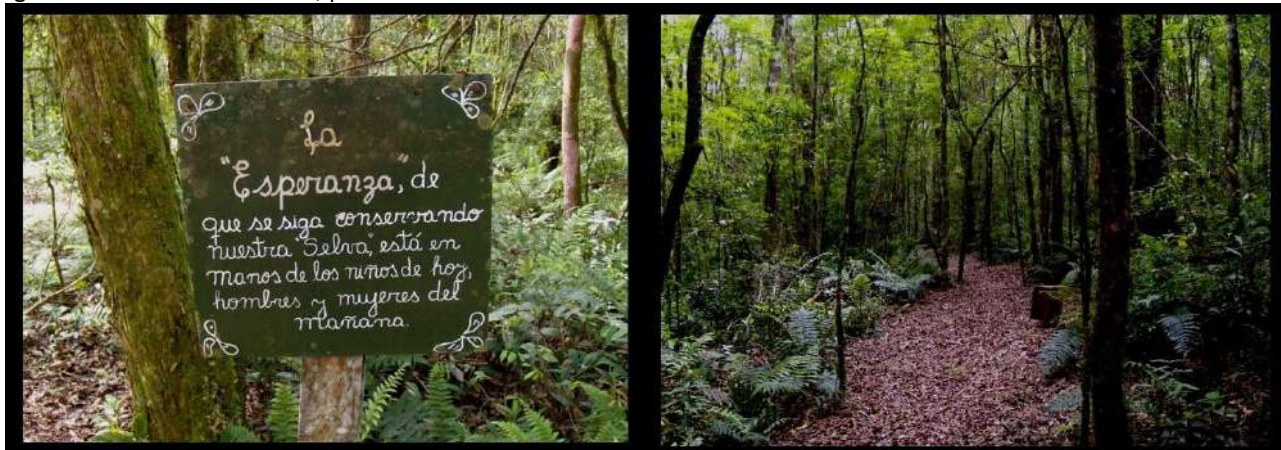 La
"Esperanza", de
que se siga conservando
nuestra "Selva", está en
manos de los niños de hoy,
hombres y mujeres del
mañana.